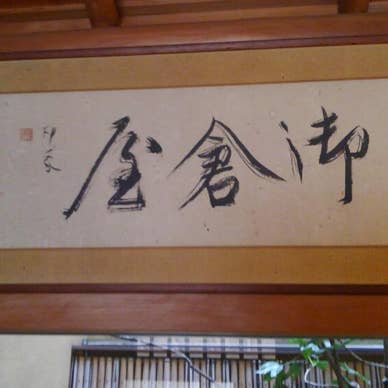 御倉屋